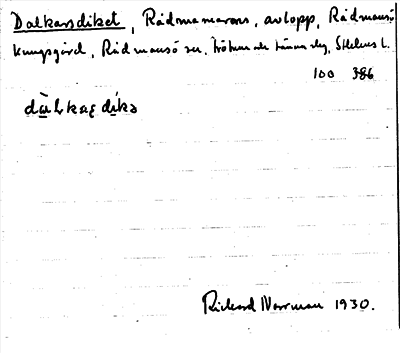 Dalkarsdiket, Rådmanmarens, avlopp, Rådmansö
Kungsgård, Rådmansö sn, Frötuna o Länna slg, Sthlms l.
100 386
Rickard Norrman 1930.